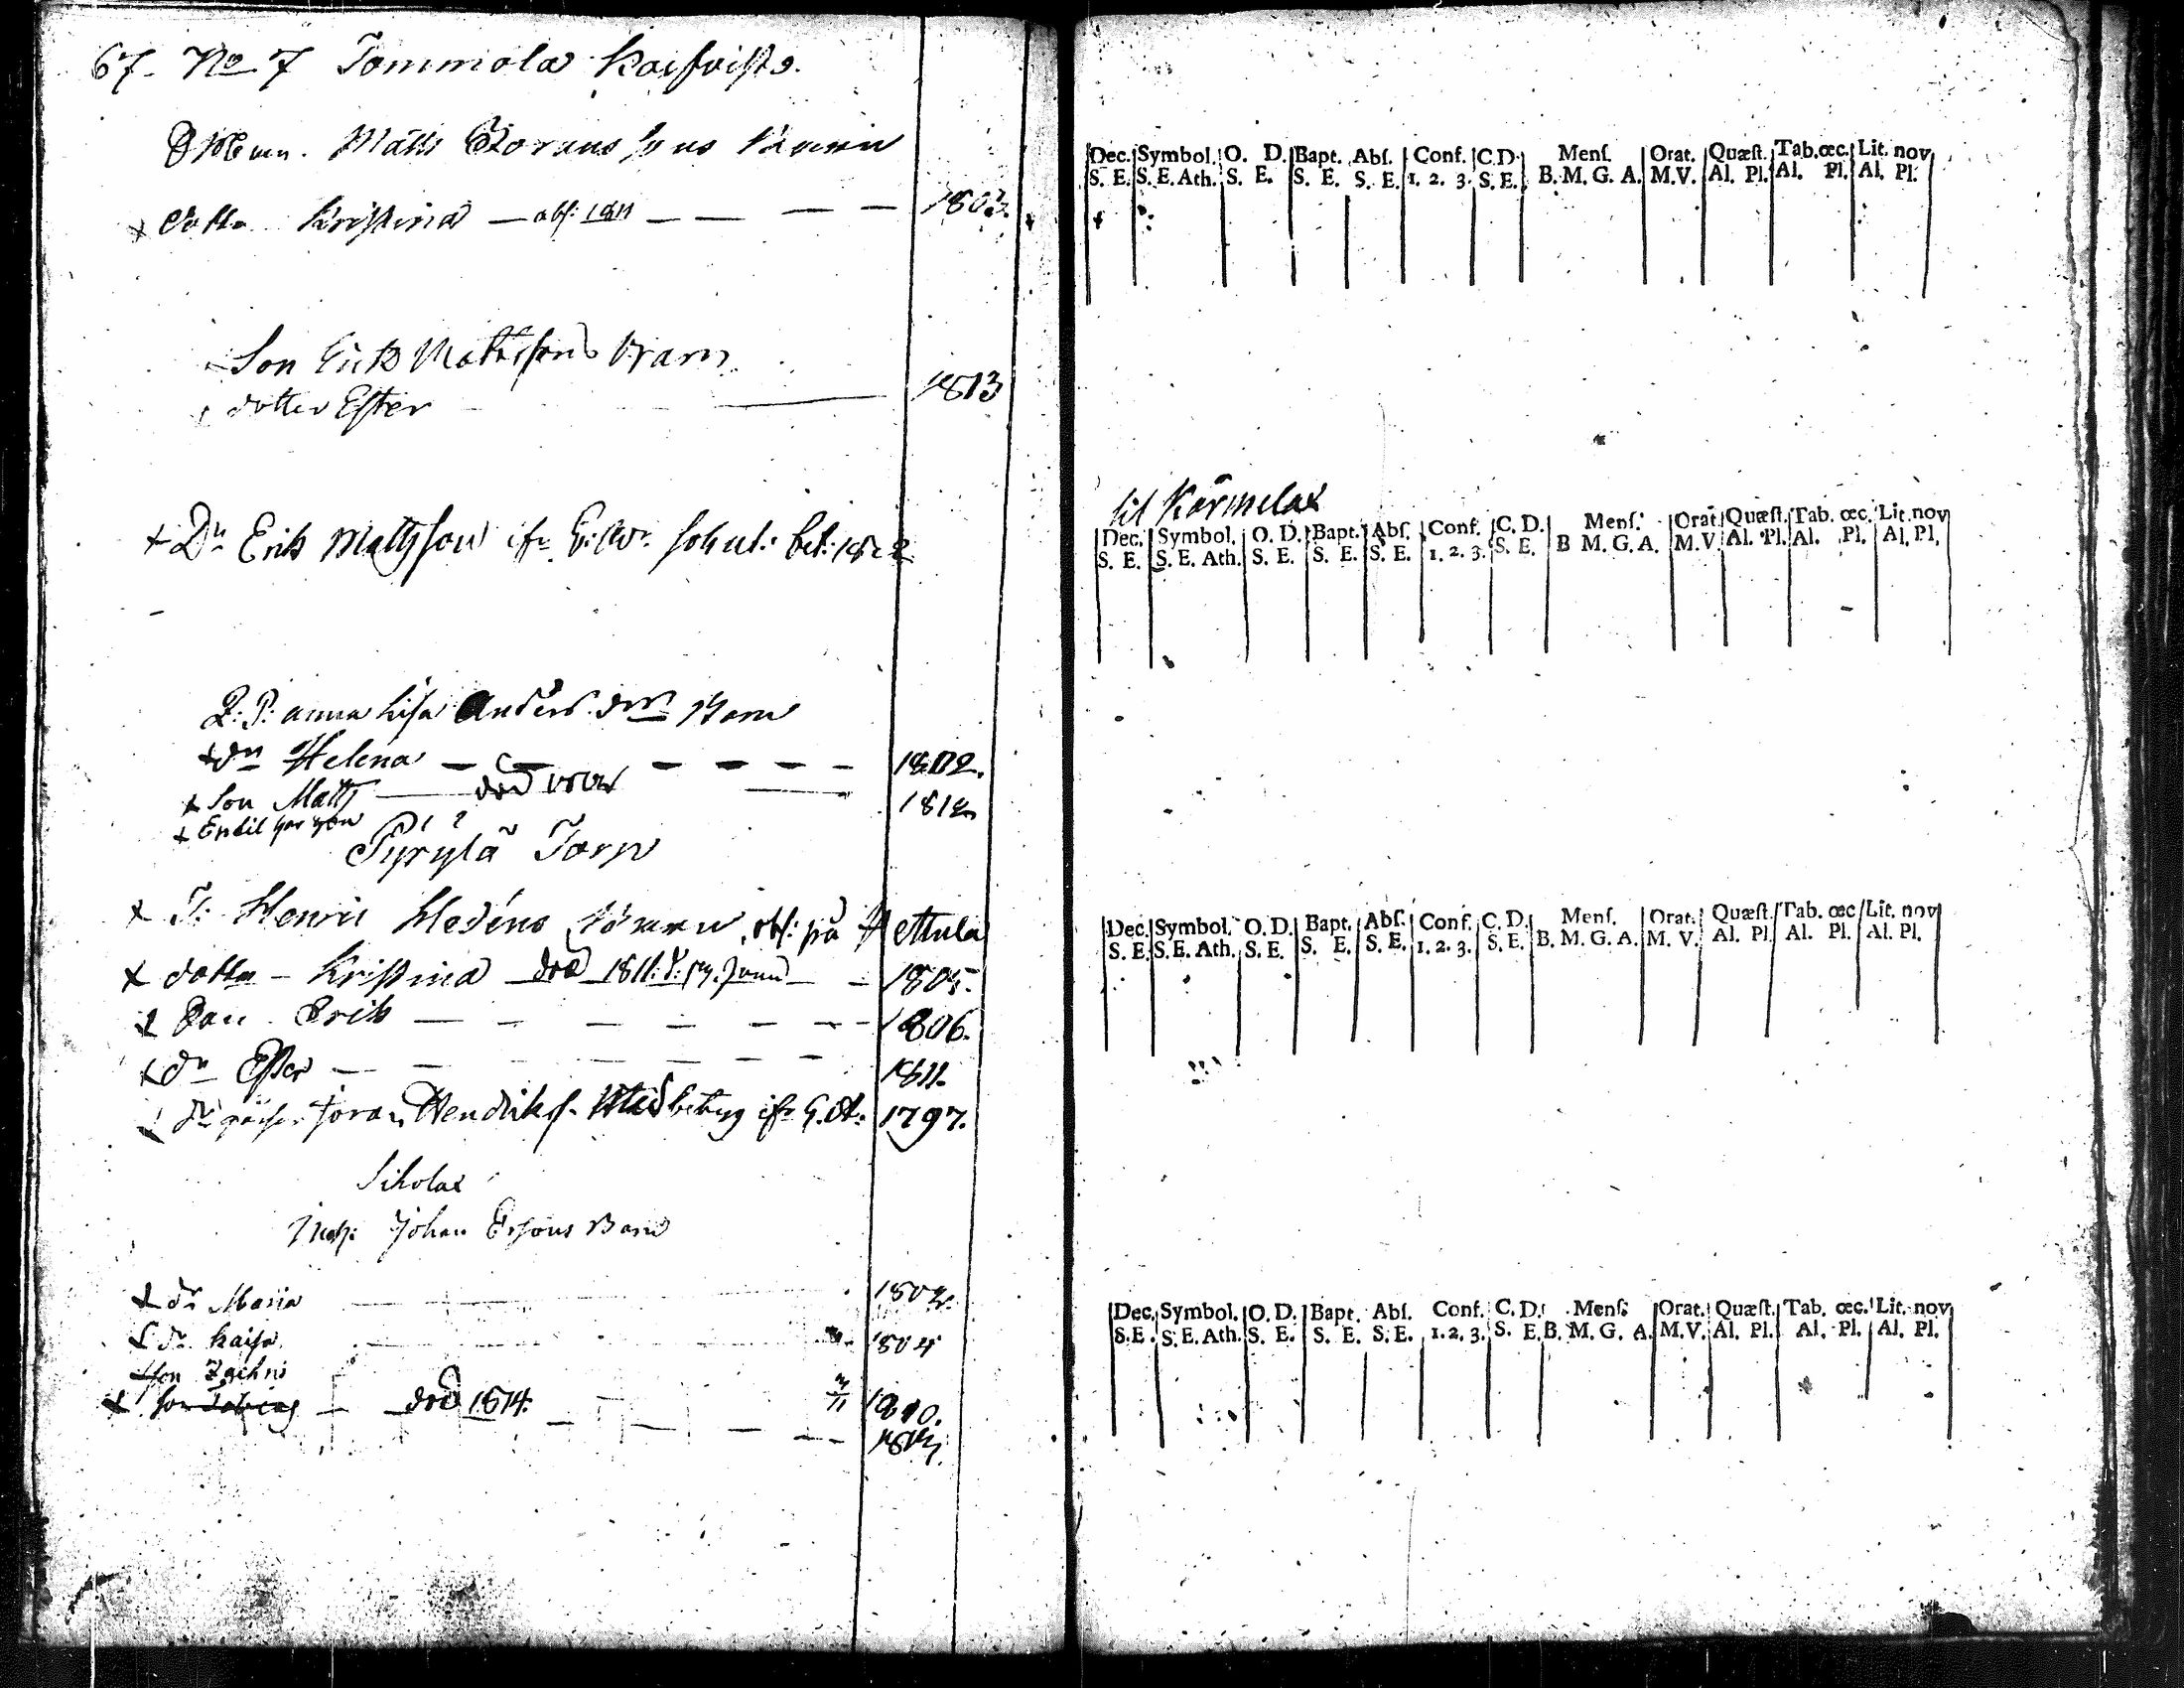 67. No 7 Tommola
Matts Görans Sons Barn
dotter Kristina — obs: 1811 — — — — 1803.
Son Erik Mattssons barn
dotter Ester — 1813
Dn Erik Mattsson
P: Anna Lisa Anders drs Barn
dn Helena — — — — — 1802.
Son Matts — död — 1812
Pyrylä Torp
Henric barn, obs: på Hattula
dotter – Kristina död 1811. — 1805.
Son Erik — — — — — — 1806.
dn Ester — — — — — — 1811.
Göran Hendriks. betyg 1797.
Sikolax
Johan Ersons Barn
dr Maria 1802.
dr Kaisa 1804
son Zachris
son Tobias — död 1814. — 1810.
Dec. Symbol. O. D. Bapt. Abſ. Conf. C.D. Menſ. Orat. Quæſt. Tab.œc. Lit. nov
S. E. S. E. Ath. S. E. S. E. S. E. 1. 2. 3. S. E. B. M. G. A. M. V. Al. Pl. Al. Pl. Al. Pl.
til Kärmelax
Dec. Symbol. O. D. Bapt. Abſ. Conf. C. D. Menſ. Orat. Quæſt. Tab. œc. Lit. nov
S. E. S. E. Ath. S. E. S. E. S. E. 1. 2. 3. S. E. B M. G. A. M. V. Al. Pl. Al. Pl. Al. Pl.
Dec. Symbol. O. D. Bapt. Abſ. Conf. C. D. Menſ. Orat. Quæſt. Tab. œc. Lit. nov
S. E. S. E. Ath. S. E. S. E. S. E. 1. 2. 3. S. E. B. M. G. A. M. V. Al. Pl. Al. Pl. Al. Pl.
Dec. Symbol. O. D. Bapt. Abſ. Conf. C. D. Menſ. Orat. Quæſt. Tab. œc. Lit. nov
S. E. S. E. Ath. S. E. S. E. S. E. 1. 2. 3. S. E. B. M. G. A. M. V. Al. Pl. Al. Pl. Al. Pl.